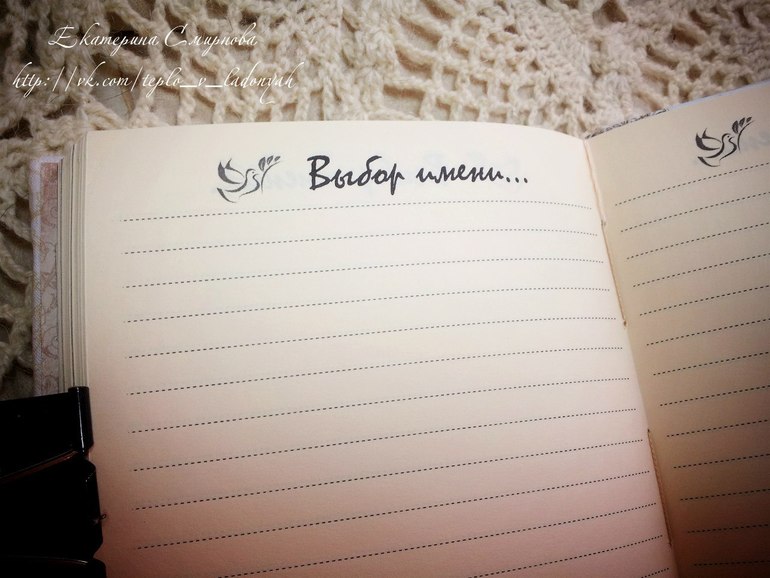 Екатерина Смирнова
http://vk.com/teplo_v_ladonyah
Выбор имени...